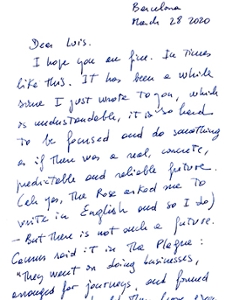 Barcelona
March 28 2020
Dear Luis.
I hope you are fine. In times
like this. It has been a while
since I just wrote to you, which
is understandable, it is so hard
to be focused and do something
as if there was a real, concrete,
predictable and reliable future.
(oh yes, The Rose asked me to
write in English and so I do)
- But there is not such a future.
Camus said it in The Plague:
"They went on doing businesses,
arranged for journeys, and formed